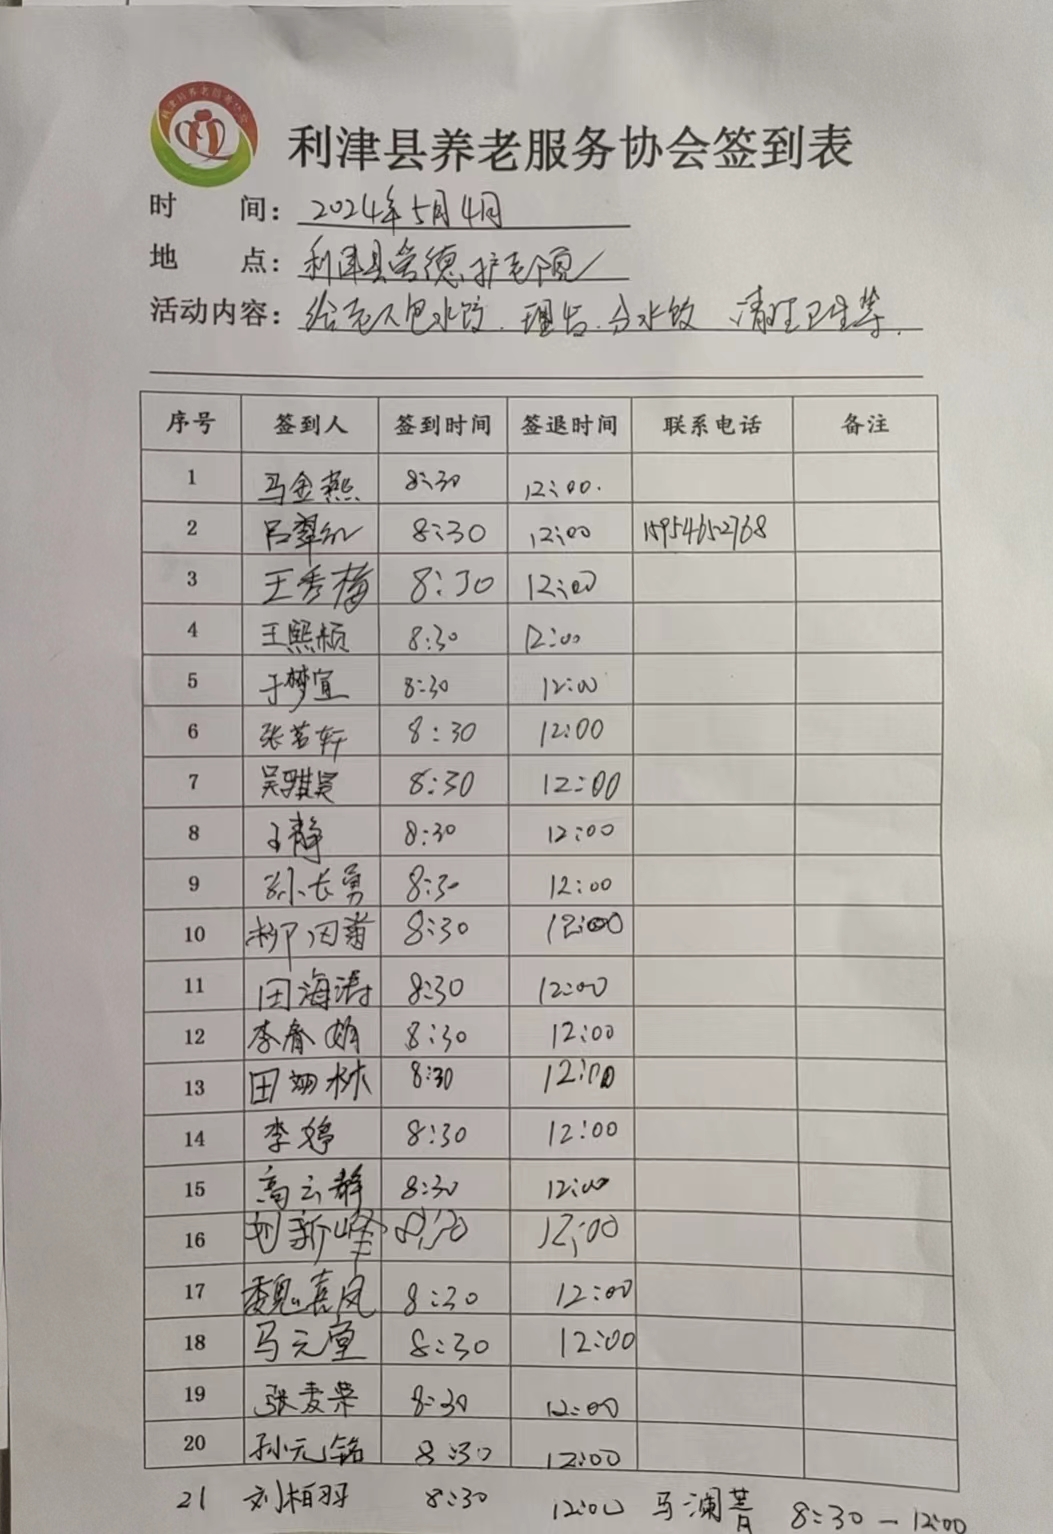 利津县养老服务协会
利津县养老服务协会签到表
时 间: 2024年5月4日
地 点: 利津县崇德护老院
活动内容: 给老人包水饺.理发.分水饺 清理卫生等.
序号 签到人 签到时间 签退时间 联系电话 备注
1 马金燕 8:30 12:00.
2 吕翠红 8:30 12:00 15954652768
3 王秀梅 8:30 12:00
4 王熙桢 8:30 12:00
5 于梦宜 8:30 12:00
6 张若轩 8:30 12:00
7 吴雅昊 8:30 12:00
8 王静 8:30 12:00
9 孙长勇 8:30 12:00
10 柳囡菊 8:30 12:00
11 田海涛 8:30 12:00
12 李春娟 8:30 12:00
13 田翊林 8:30 12:00
14 李婷 8:30 12:00
15 高云静 8:30 12:00
16 刘新峰 8:30 12:00
17 魏喜凤 8:30 12:00
18 马元堂 8:30 12:00
19 张麦荣 8:30 12:00
20 孙元铭 8:30 12:00
21 刘柏羽 8:30 12:00 马澜菁 8:30-12:00